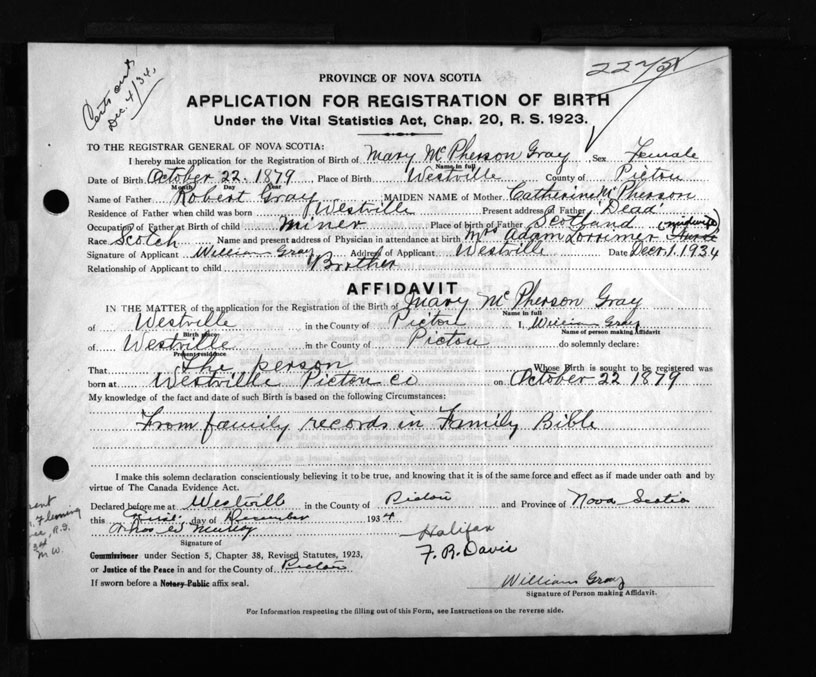 Certs out
Dec. 4/34.
PROVINCE OF NOVA SCOTIA
APPLICATION FOR REGISTRATION OF BIRTH
Under the Vital Statistics Act, Chap. 20, R. S. 1923.
TO THE REGISTRAR GENERAL OF NOVA SCOTIA:
I hereby make application for the Registration of Birth of Mary McPherson Gray Sex Female
Name in full
Date of Birth October 22. 1879 Place of Birth Westville County of Pictou
Month Day Year
Name of Father Robert Gray MAIDEN NAME of Mother Catherine McPherson
Residence of Father when child was born Westville Present address of Father Dead
Occupation of Father at Birth of child Miner Place of birth of Father Scotland (midwife)
Race Scotch Name and present address of Physician in attendance at birth Mrs Adam Lorrimer Nurse
Signature of Applicant William Gray Address of Applicant Westville Date Dec. 1. 1934
Relationship of Applicant to child Brother
AFFIDAVIT
IN THE MATTER of the application for the Registration of the Birth of Mary McPherson Gray
Name in full
of Westville in the County of Pictou I, William Gray
Birth place Name of person making Affidavit
of Westville in the County of Pictou do solemnly declare:
Present residence
That The person Whose Birth is sought to be registered was
born at Westville Pictou co on October 22 1879
My knowledge of the fact and date of such Birth is based on the following Circumstances:
From family records in Family Bible
I make this solemn declaration conscientiously believing it to be true, and knowing that it is of the same force and effect as if made under oath and by
virtue of The Canada Evidence Act.
Declared before me at Westville in the County of Pictou and Province of Nova Scotia
this First day of December 1934
Thos W Murray
Signature of
Halifax
F. R. Davis
Commissioner under Section 5, Chapter 38, Revised Statutes, 1923,
or Justice of the Peace in and for the County of Pictou
If sworn before a Notary Public affix seal.
William Gray
Signature of Person making Affidavit.
For Information respecting the filling out of this Form, see Instructions on the reverse side.